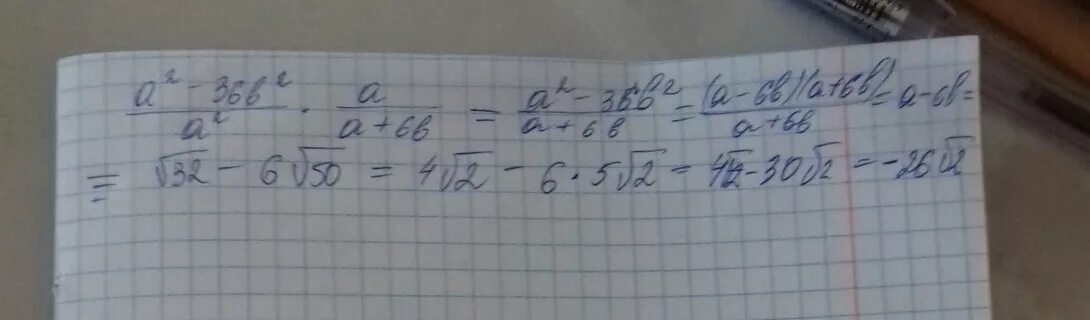 (a² - 36b²)/a² · a/(a + 6b) = (a² - 36b²)/(a + 6b) = ((a - 6b)(a + 6b))/(a + 6b) = a - 6b =
= √32 - 6√50 = 4√2 - 6 · 5√2 = 4√2 - 30√2 = -26√2